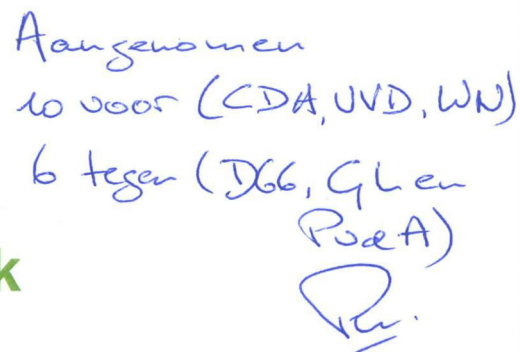 Aangenomen
10 voor (CDA, VVD, WN)
6 tegen (D66, GL en
PvdA)
k